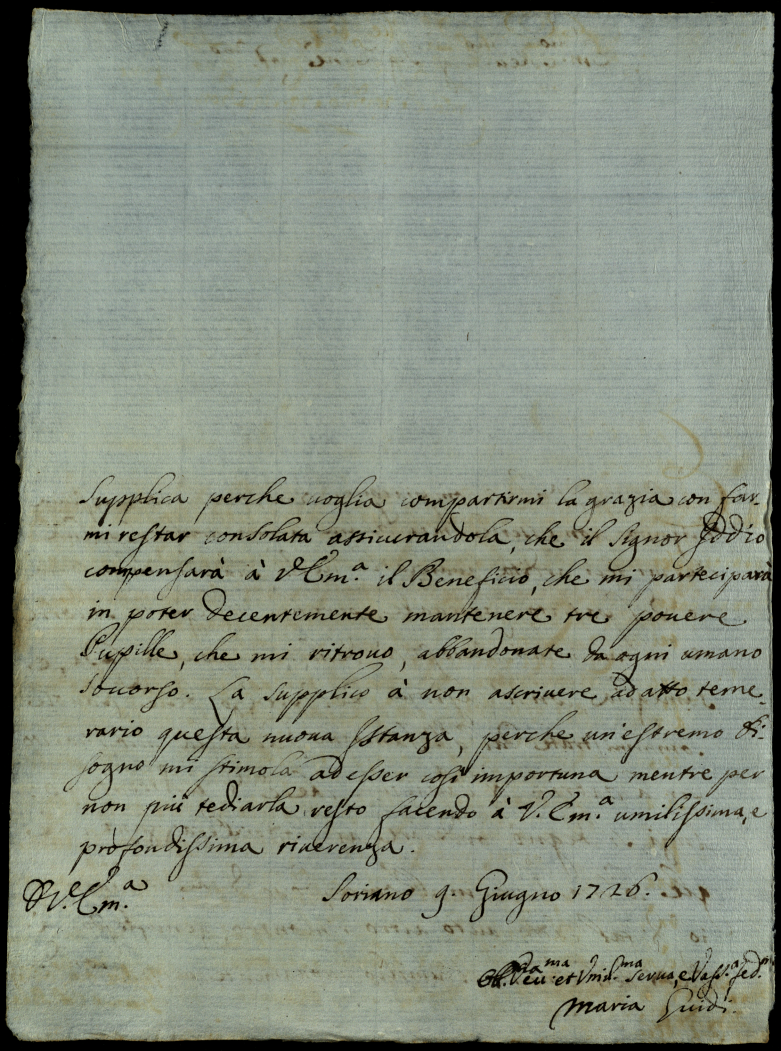 supplica perche uoglia compartirmi la grazia con far-
mi restar consolata assicurandola, che il Signor Iddio
compensarà à V. Em.ª il Beneficio, che mi parteciparà
in poter decentemente mantenere tre pouere
Pupille, che mi ritrouo, abbandonate da ogni umano
socorso. La supplico à non ascriuere ad atto teme-
rario questa nuoua Istanza, perche un'estremo bi-
sogno mi stimola ad esser così importuna mentre per
non più tediarla resto facendo à V. Em.ª umilissima, e
profondissima riuerenza.
D. V. Em.ª
Soriano 9. Giugno 1726.
et Vmil.ma Serua, e Vass.ª
Maria Guidi.